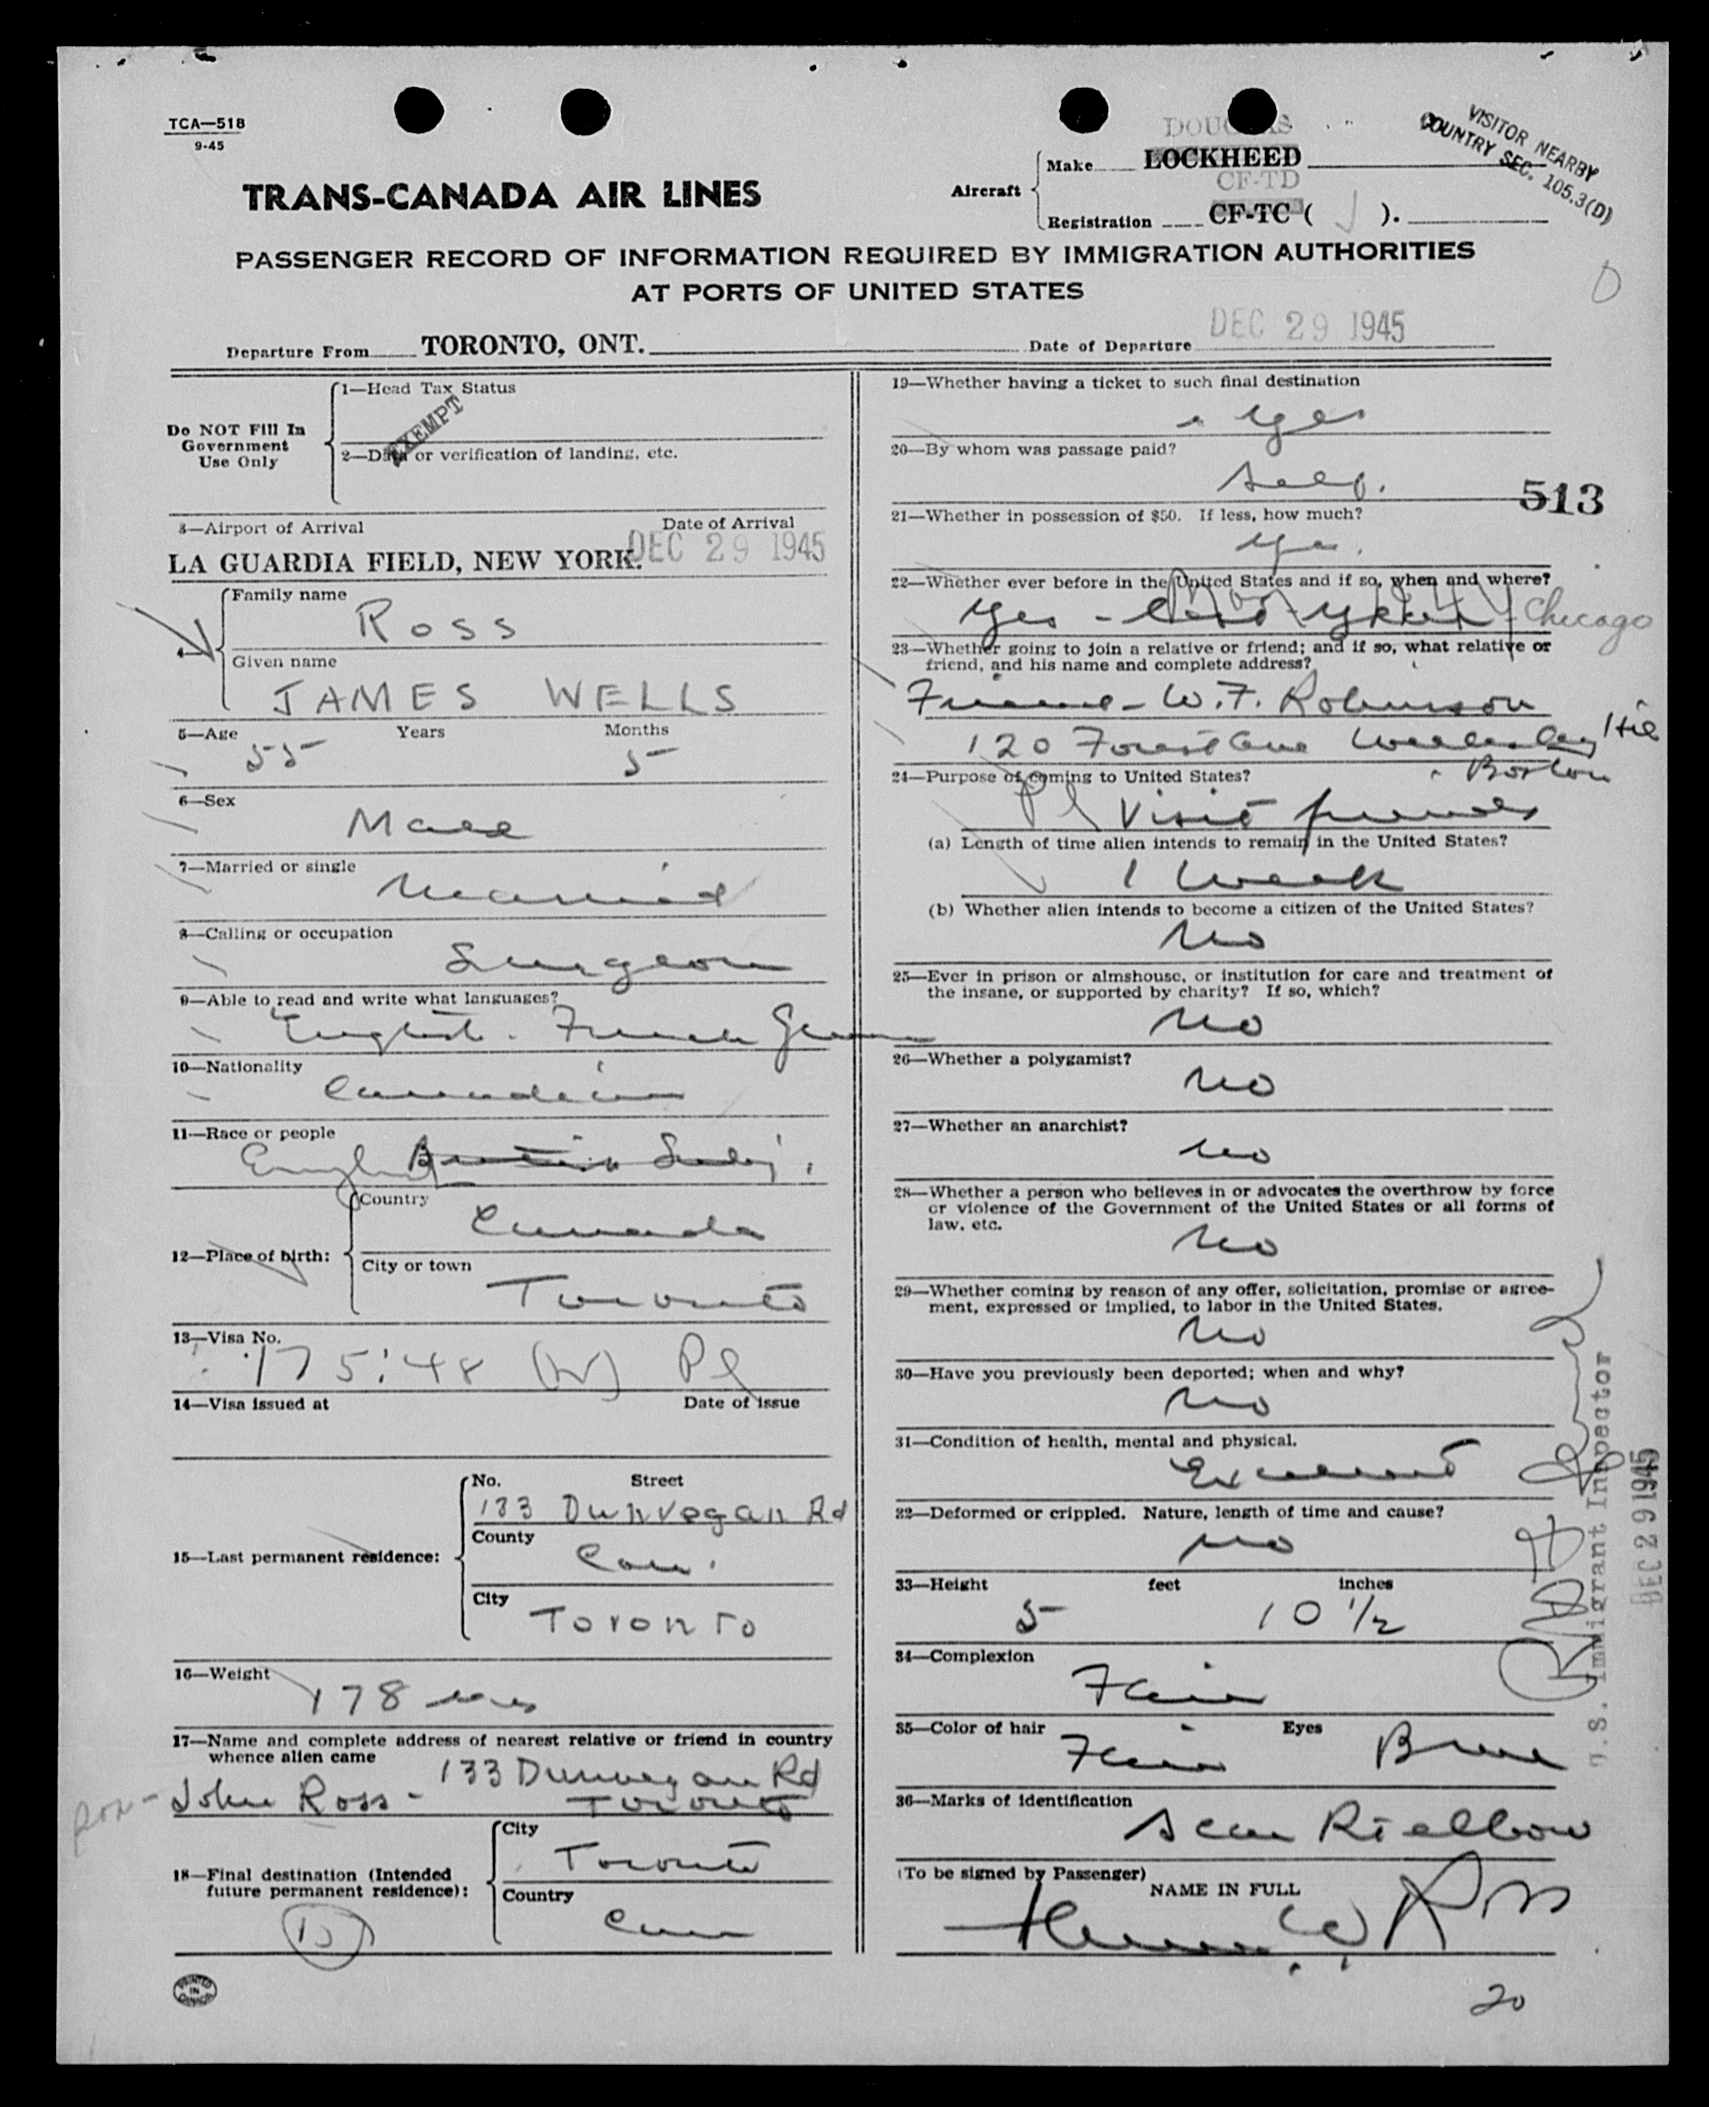 TCA—518
9-45
DOUGLAS
VISITOR NEARBY
COUNTRY SEC. 105.3(D)
Aircraft
Make LOCKHEED
CF-TD
Registration CF-TC ( J ).
TRANS-CANADA AIR LINES
PASSENGER RECORD OF INFORMATION REQUIRED BY IMMIGRATION AUTHORITIES
AT PORTS OF UNITED STATES
Departure From TORONTO, ONT.
Date of Departure DEC 29 1945
Do NOT Fill In
Government
Use Only
1—Head Tax Status
EXEMPT
2—Data or verification of landing, etc.
3—Airport of Arrival Date of Arrival
LA GUARDIA FIELD, NEW YORK. DEC 29 1945
4—
Family name
Ross
Given name
JAMES WELLS
5—Age Years Months
55 5
6—Sex
Male
7—Married or single
Married
8—Calling or occupation
Surgeon
9—Able to read and write what languages?
English. French German
10—Nationality
Canadian
11—Race or people
English British Subj.
12—Place of birth:
Country
Canada
City or town
Toronto
13—Visa No.
175:48 (W) Pl
14—Visa issued at Date of issue
15—Last permanent residence:
No. Street
133 Dunvegan Rd
County
Can.
City
Toronto
16—Weight
178
17—Name and complete address of nearest relative or friend in country
whence alien came
133 Dunvegan Rd
son - John Ross - Toronto
18—Final destination (Intended
future permanent residence):
City
Toronto
Country
Can
PRINTED
IN
CANADA
19—Whether having a ticket to such final destination
Yes
20—By whom was passage paid?
Self.
513
21—Whether in possession of $50. If less, how much?
Yes.
22—Whether ever before in the United States and if so, when and where?
Nov 1944
Yes - last year Chicago
23—Whether going to join a relative or friend; and if so, what relative or
friend, and his name and complete address?
Friend - W.F. Robinson
120 Forest Ave Wellesley Hill
Boston
24—Purpose of coming to United States?
Pl Visit friends
(a) Length of time alien intends to remain in the United States?
1 Week
(b) Whether alien intends to become a citizen of the United States?
No
25—Ever in prison or almshouse, or institution for care and treatment of
the insane, or supported by charity? If so, which?
No
26—Whether a polygamist?
No
27—Whether an anarchist?
No
28—Whether a person who believes in or advocates the overthrow by force
or violence of the Government of the United States or all forms of
law, etc.
No
29—Whether coming by reason of any offer, solicitation, promise or agree-
ment, expressed or implied, to labor in the United States.
No
30—Have you previously been deported; when and why?
No
31—Condition of health, mental and physical.
Excellent
32—Deformed or crippled. Nature, length of time and cause?
No
33—Height feet inches
5 10 1/2
34—Complexion
Fair
35—Color of hair Eyes
Fair Blue
36—Marks of identification
Scar Rt elbow
(To be signed by Passenger)
NAME IN FULL
James W. Ross
20
U.S. Immigrant Inspector
DEC 29 1945